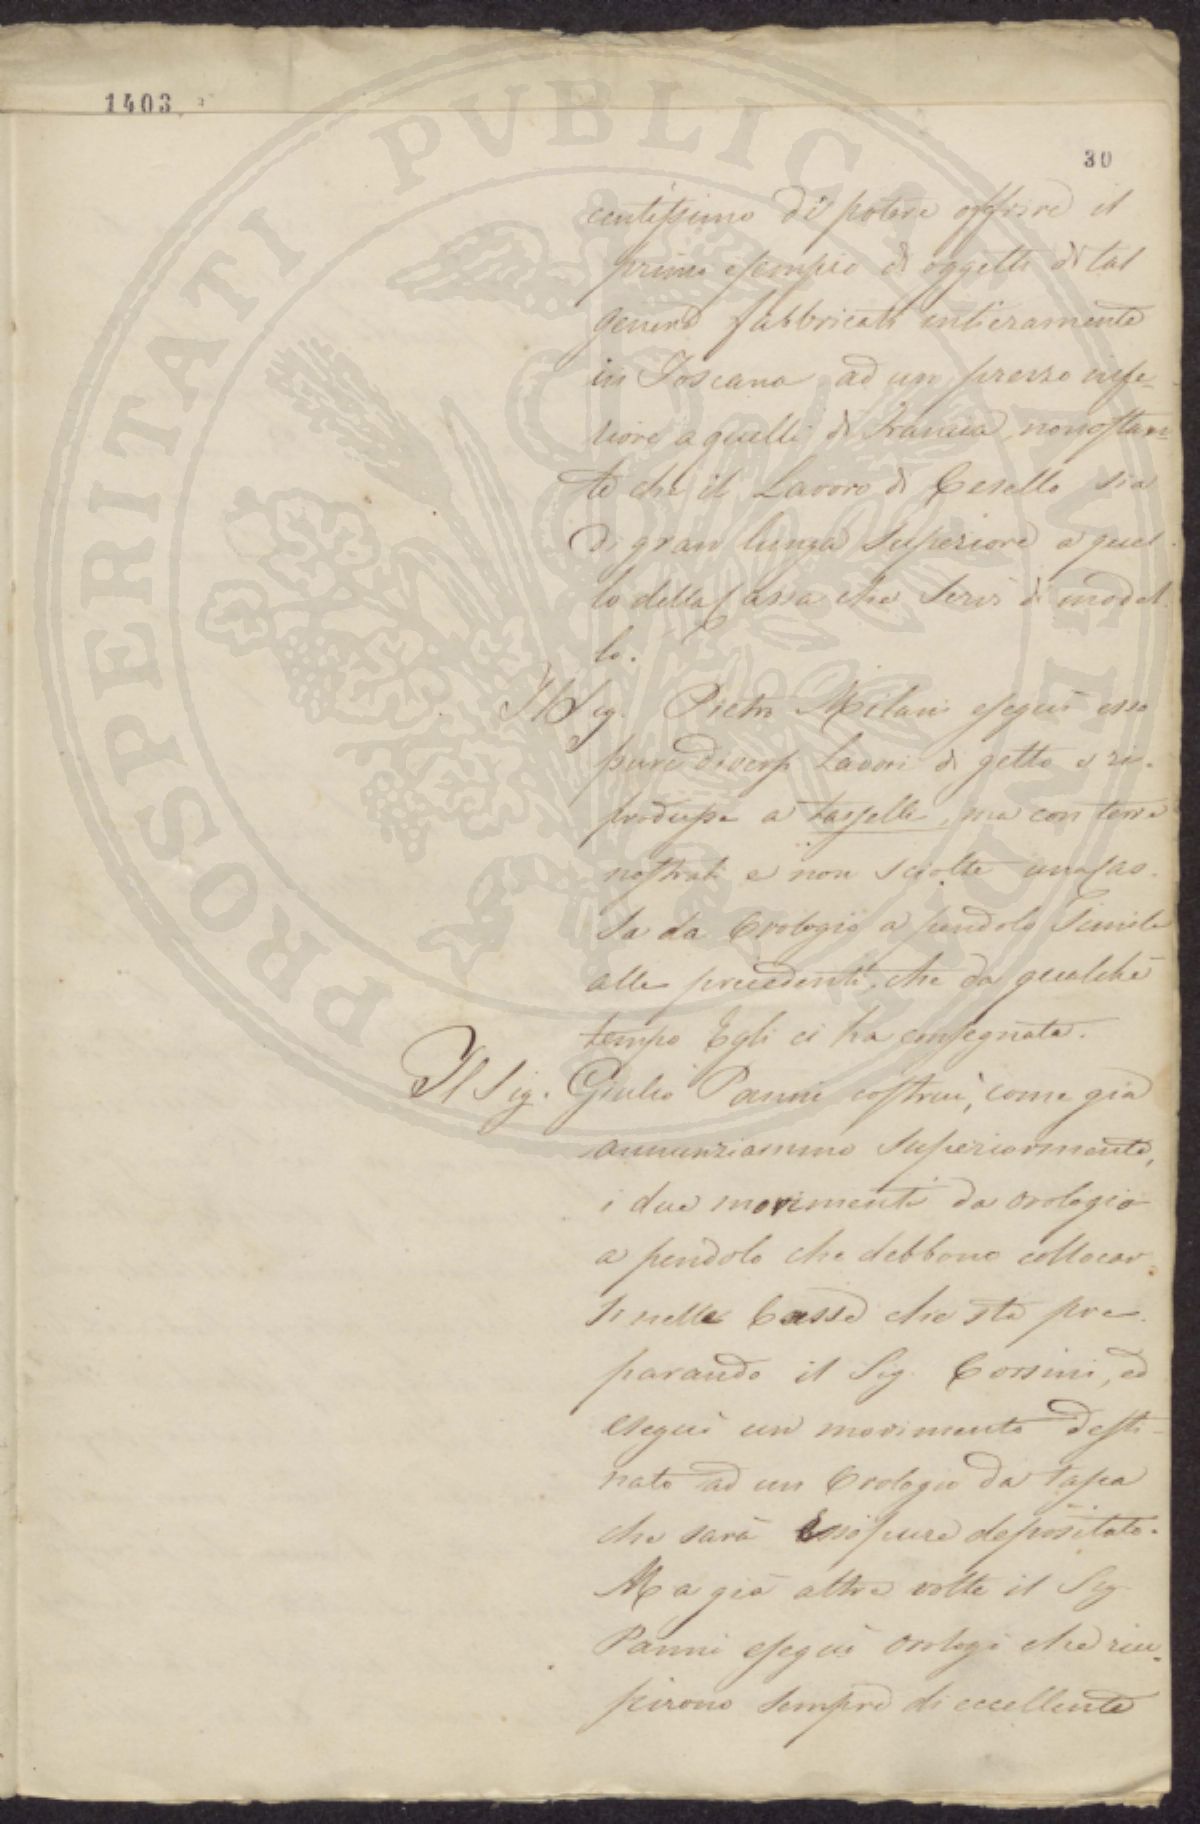 1403
30
centissimo di potere offrire il
primo esempio di oggetti di tal
genere fabbricati intieramente
in Toscana ad un prezzo infe-
riore a quelli di Francia, nonostan-
te che il Lavoro di Cesello sia
di gran lunga superiore a quel-
lo della Cassa che servì di model-
lo.
Il Sig. Pietro Milani eseguì esso
pure diversi Lavori di getto e ri-
produsse a tasselli, ma con terre
nostrali e non sciolte una Cas-
sa da Orologio a pendolo simile
alle precedenti, che da qualche
tempo Egli ci ha consegnata.
Il Sig. Giulio Panni costruì, come già
annunziammo superiormente,
i due movimenti da orologio
a pendolo che debbono collocar-
si nelle Casse che sta pre-
parando il Sig. Corsini, ed
eseguì un movimento desti-
nato ad un Orologio da tasca
che sarà Esso pure depositato.
Ma già altre volte il Sig.
Panni eseguì Orologi che riu-
scirono sempre di eccellente
PROSPERITATI PVBLICAE